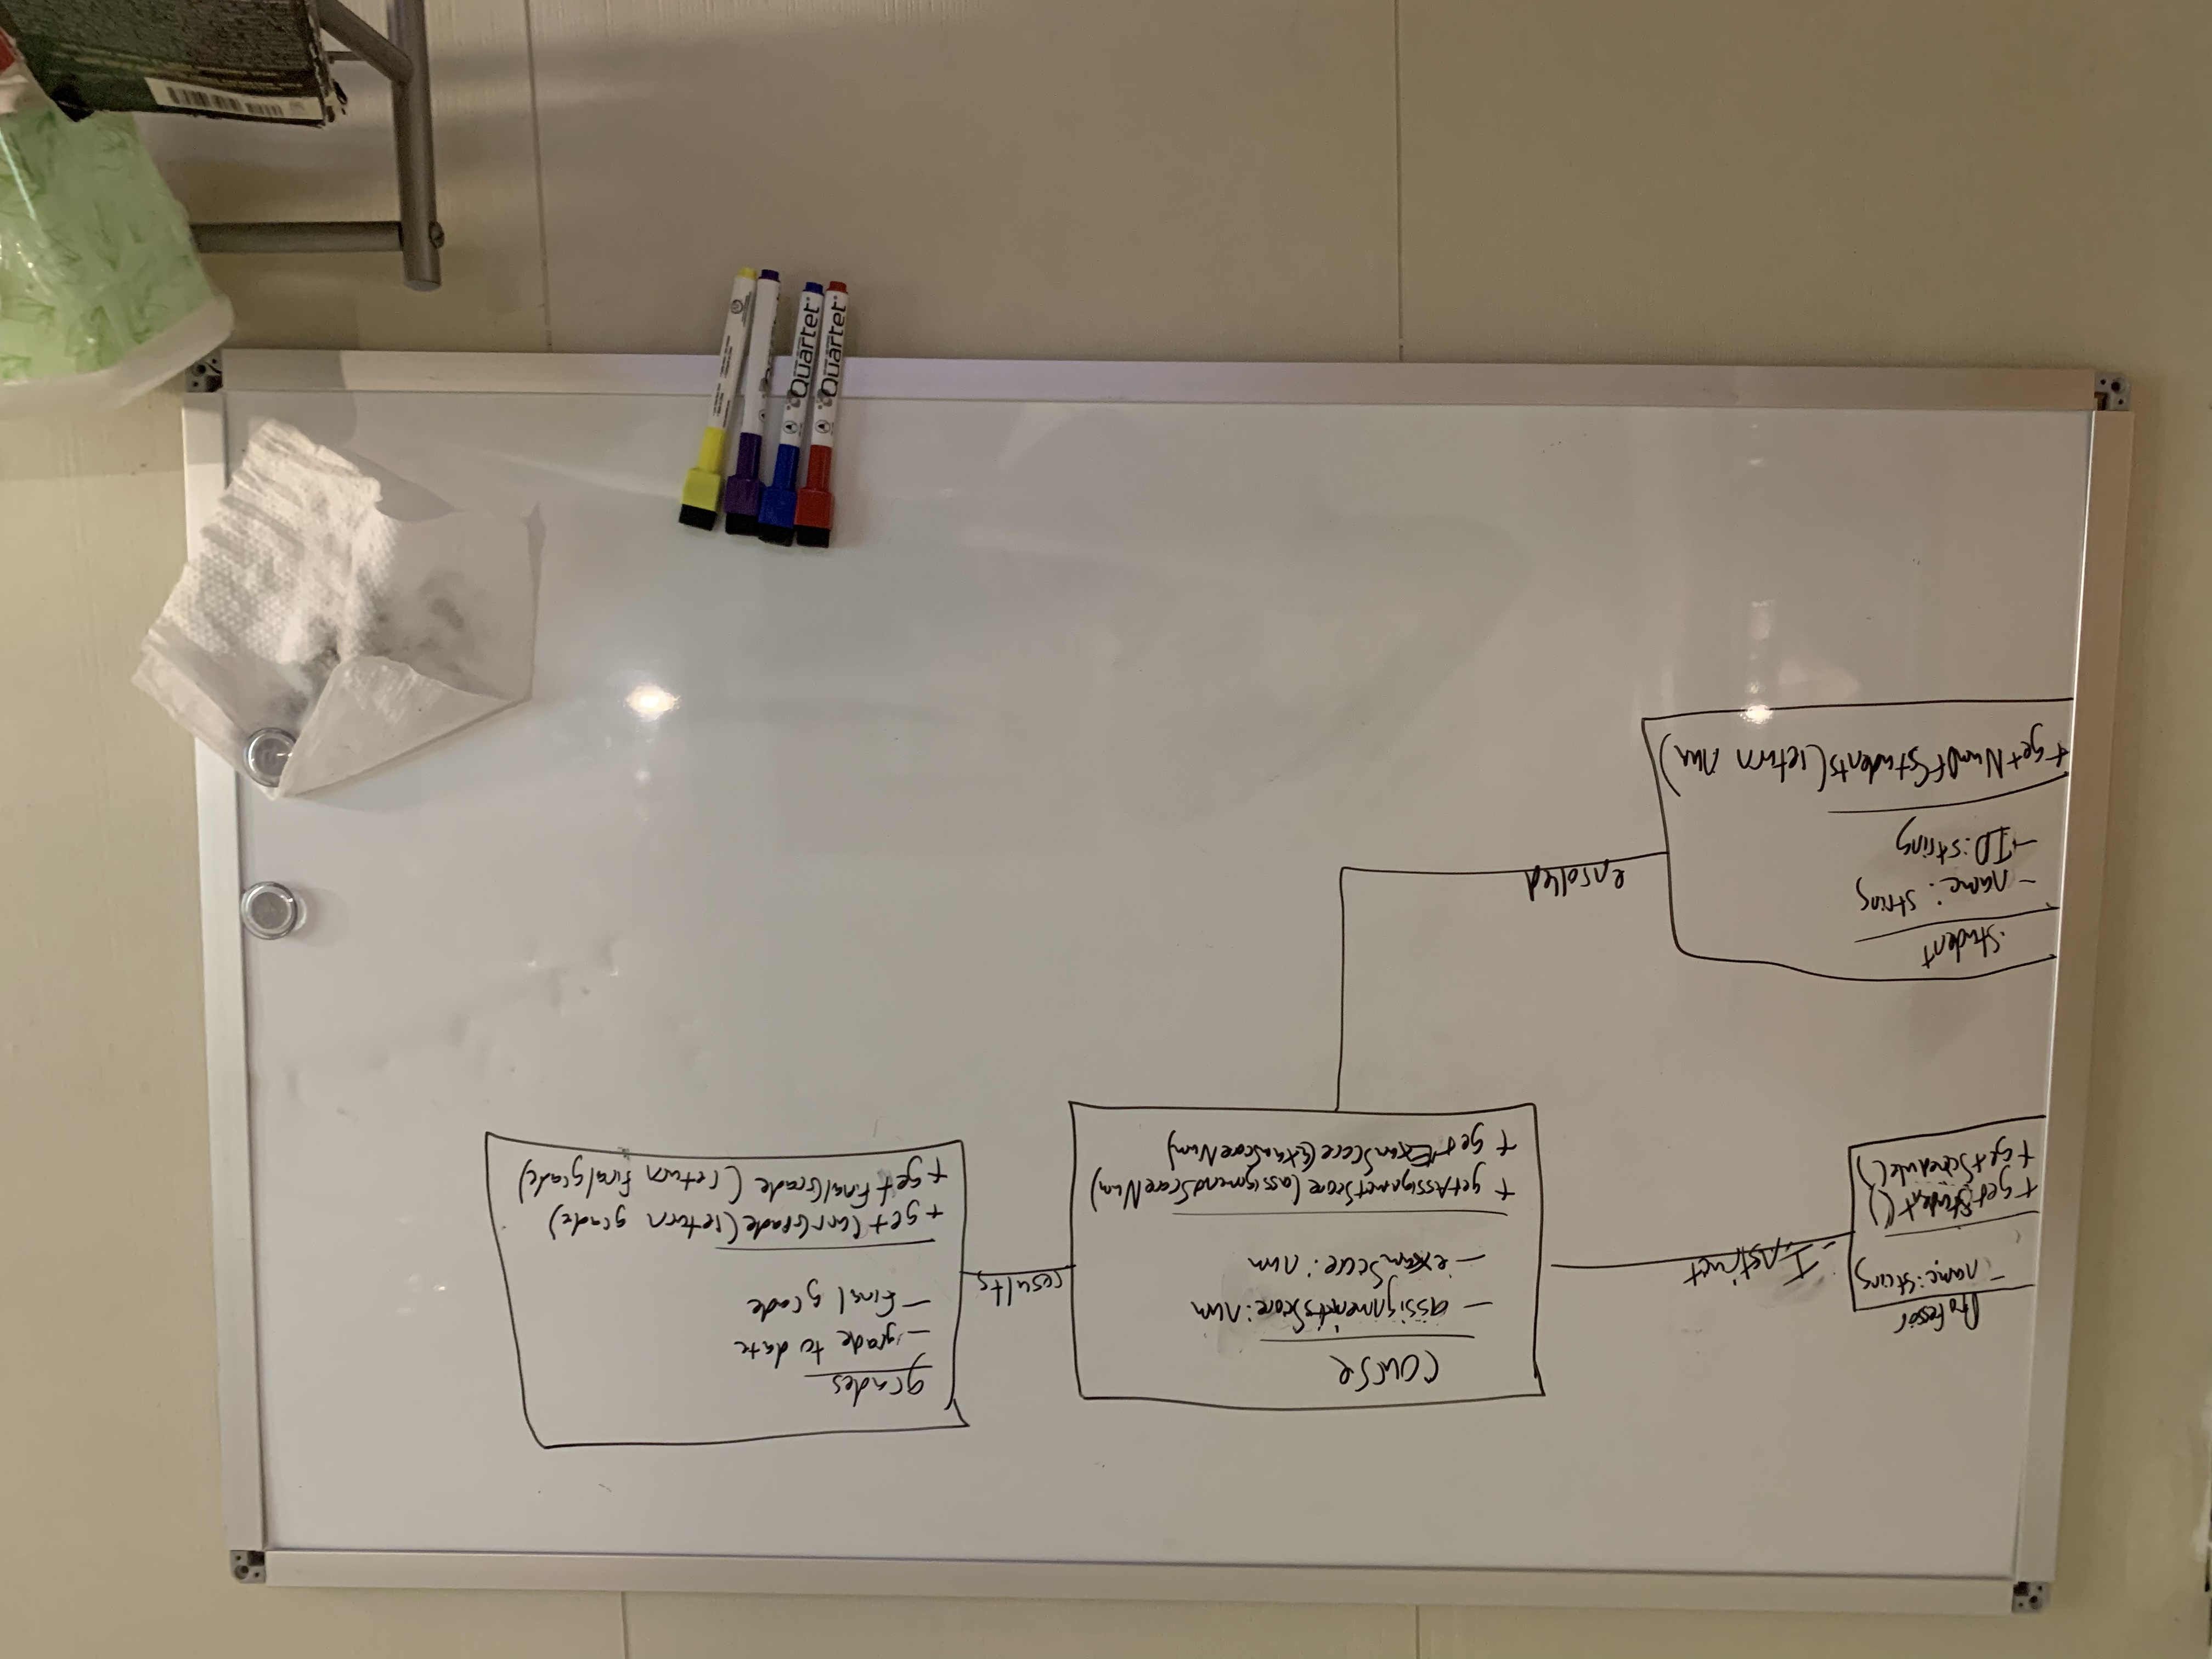 Professor
- name: String
+ getStudent()
+ getSchedule()
Instruct
course
- assignmentsScore: num
- examScore: num
+ getAssignmetScore(assignmendScoreNum)
+ getExamScore(ExamScoreNum)
results
grades
- grade to date
- final grade
+ getCurrGrade(return grade)
+ getFinalGrade (return finalgrade)
Student
- name: string
- ID: string
+ getNumOfStudents(return num)
enrolled
Quartet
Quartet